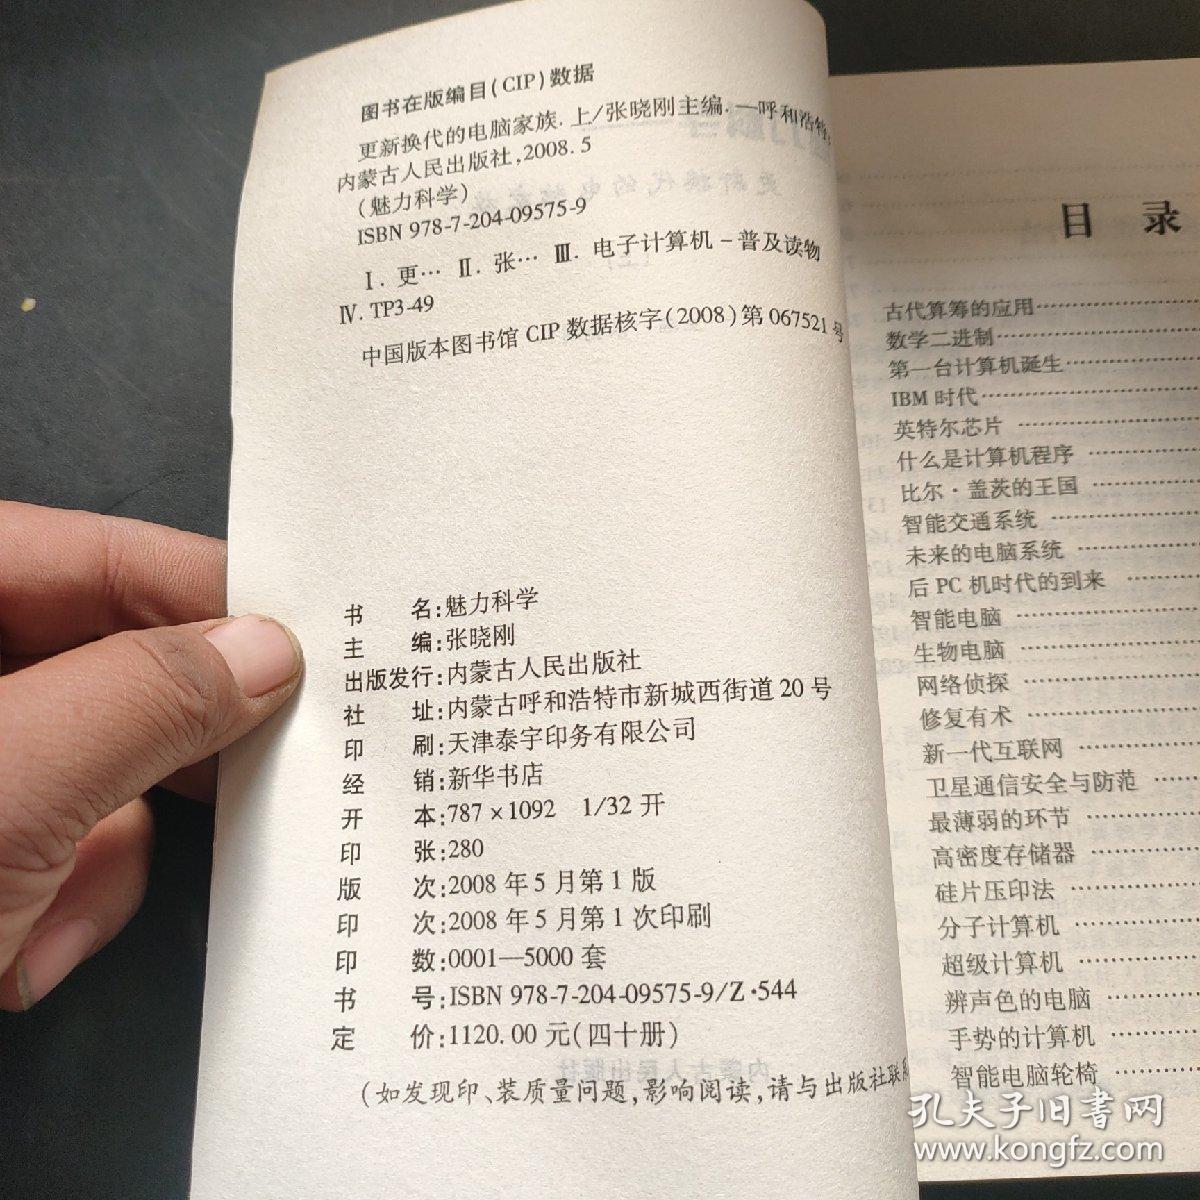 图书在版编目(CIP)数据
更新换代的电脑家族.上/张晓刚主编.—呼和浩特:
内蒙古人民出版社,2008.5
(魅力科学)
ISBN 978-7-204-09575-9
Ⅰ.更… Ⅱ.张… Ⅲ.电子计算机-普及读物
Ⅳ.TP3-49
中国版本图书馆CIP数据核字(2008)第067521号
书 名:魅力科学
主 编:张晓刚
出版发行:内蒙古人民出版社
社 址:内蒙古呼和浩特市新城西街道20号
印 刷:天津泰宇印务有限公司
经 销:新华书店
开 本:787×1092 1/32开
印 张:280
版 次:2008年5月第1版
印 次:2008年5月第1次印刷
印 数:0001—5000套
书 号:ISBN 978-7-204-09575-9/Z·544
定 价:1120.00元(四十册)
(如发现印、装质量问题,影响阅读,请与出版社联
目 录
古代算筹的应用
数学二进制
第一台计算机诞生
IBM时代
英特尔芯片
什么是计算机程序
比尔·盖茨的王国
智能交通系统
未来的电脑系统
后PC机时代的到来
智能电脑
生物电脑
网络侦探
修复有术
新一代互联网
卫星通信安全与防范
最薄弱的环节
高密度存储器
硅片压印法
分子计算机
超级计算机
辨声色的电脑
手势的计算机
智能电脑轮椅
孔夫子旧书网
www.kongfz.com